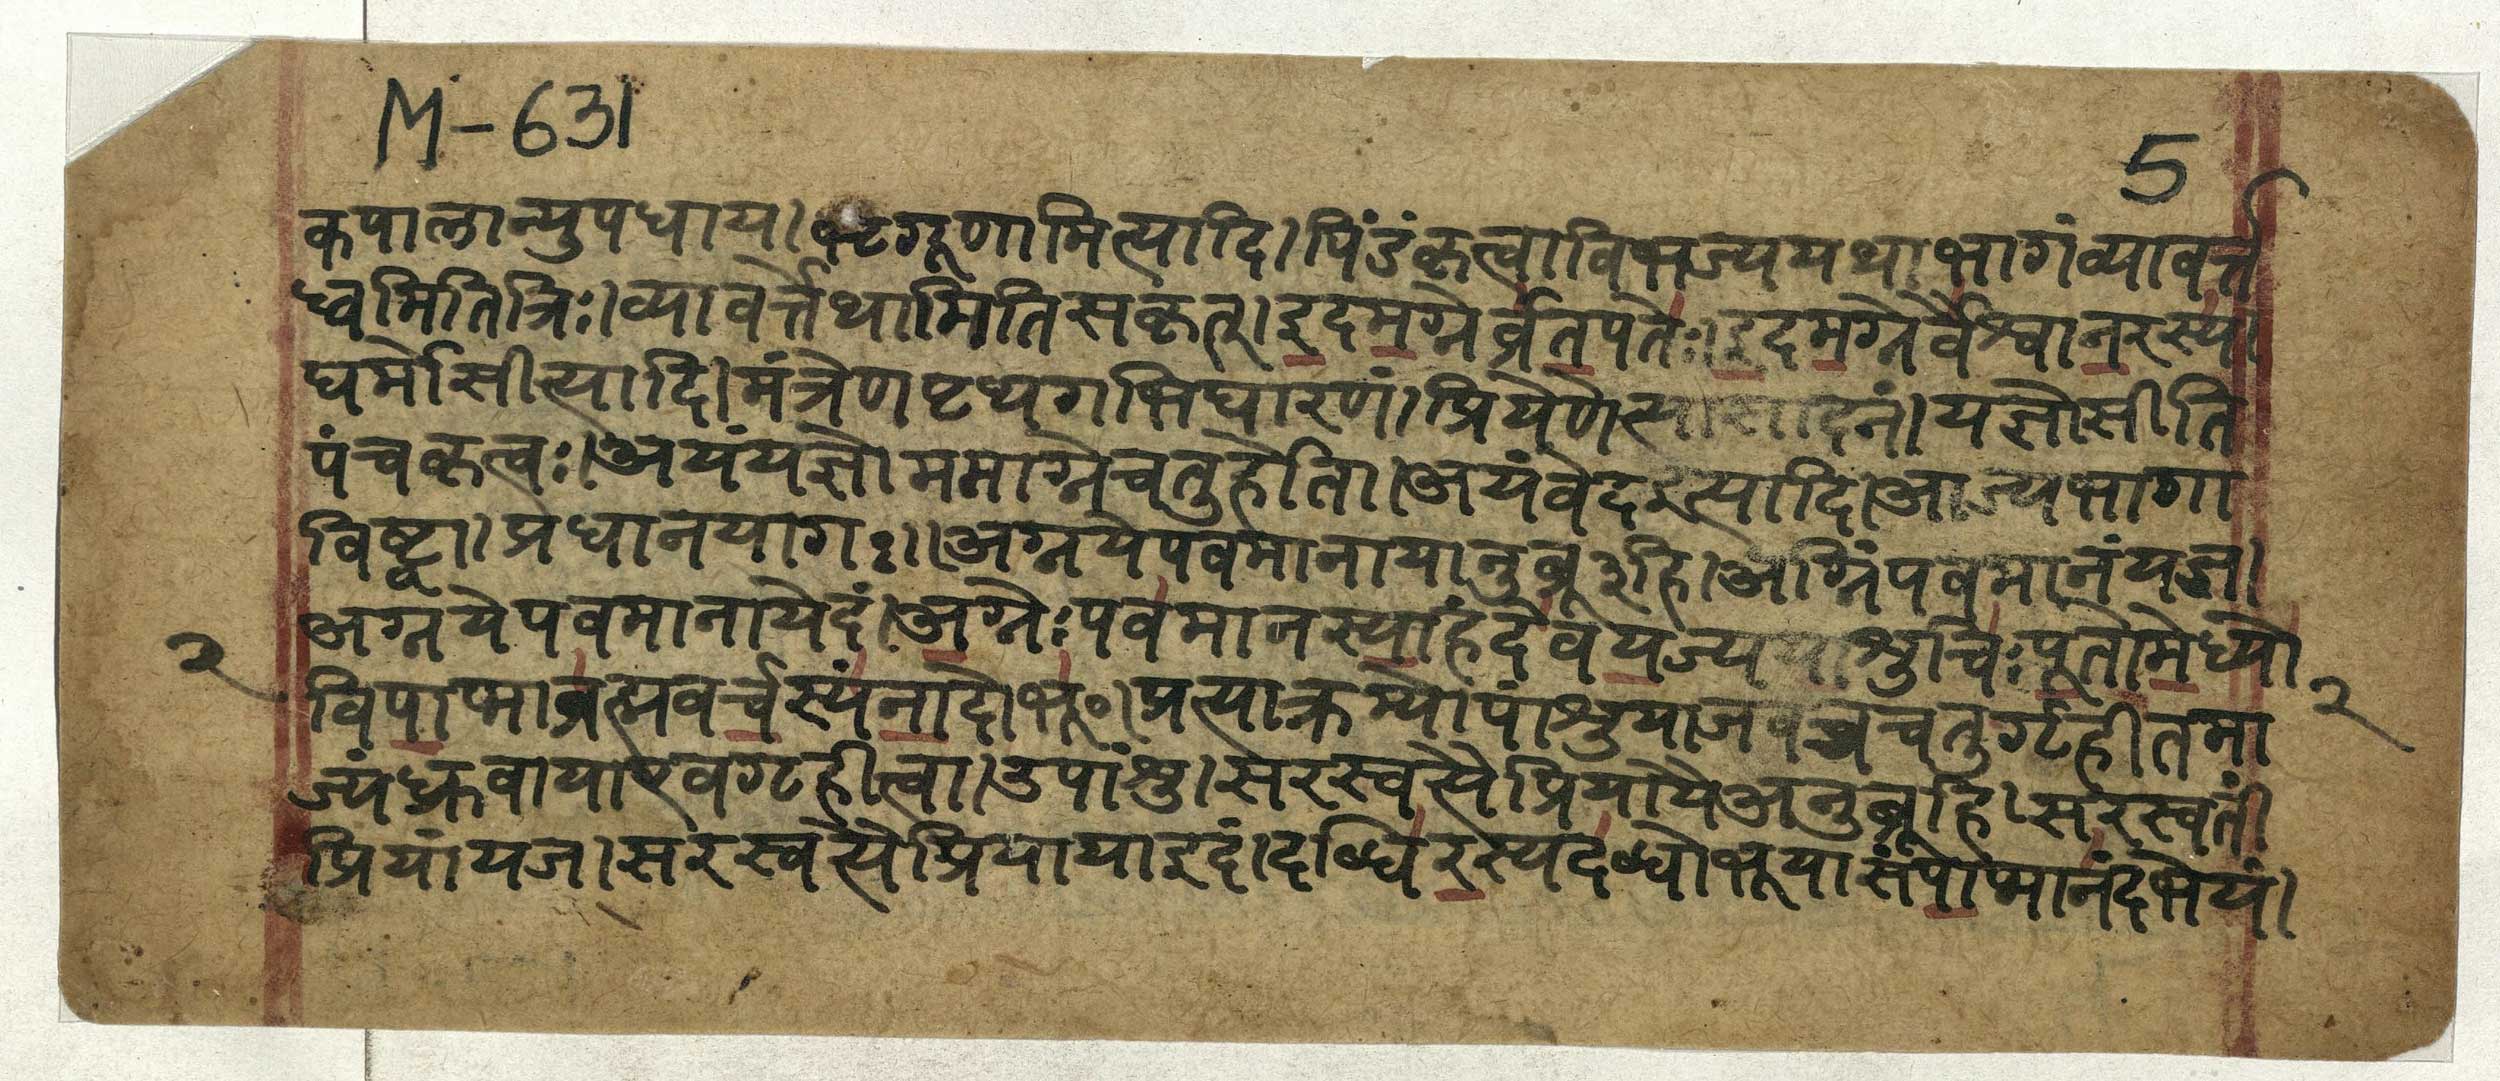 M-631
5
कपालान्युपधाय। भृगूणामित्यादि। पिंडंकृत्वाविभज्ययथाभागंव्यावर्त्त
ध्वमितित्रिः। व्यावर्त्तेथामितिसकृत्। इदमग्नेर्व्रतपतेः। इदमग्नेर्वैश्वानरस्य।
घर्मोसीत्यादि। मंत्रेणपृथगभिघारणं। प्रियेणेत्यासादनं। यज्ञोसीति
पंचकृत्वः। अयंयज्ञोममाग्नेचतुर्होता। अयंवेदइत्यादि। आज्यभागा
विष्ट्वा। प्रधानयागः।। अग्नयेपवमानायानुब्रू३हि। अग्निंपवमानंयज।
अग्नयेपवमानायेदं। अग्नेःपवमानस्याहंदेवयज्ययाशुचिःपूतोमेध्यो
२ विपाप्माब्रह्मवर्चस्यंनादोभू०। प्रत्याक्रम्योपांशुयाज चतुर्गृहीतमा २
ज्यंध्रुवायाऽवगृहीत्वा। उपांशु। सरस्वत्यैप्रियायैअनुब्रूहि। सरस्वतीं
प्रियांयज। सरस्वत्यैप्रियायाइदं। दब्धिरस्यदब्धोभूयासंपाप्मानंदभेयं।